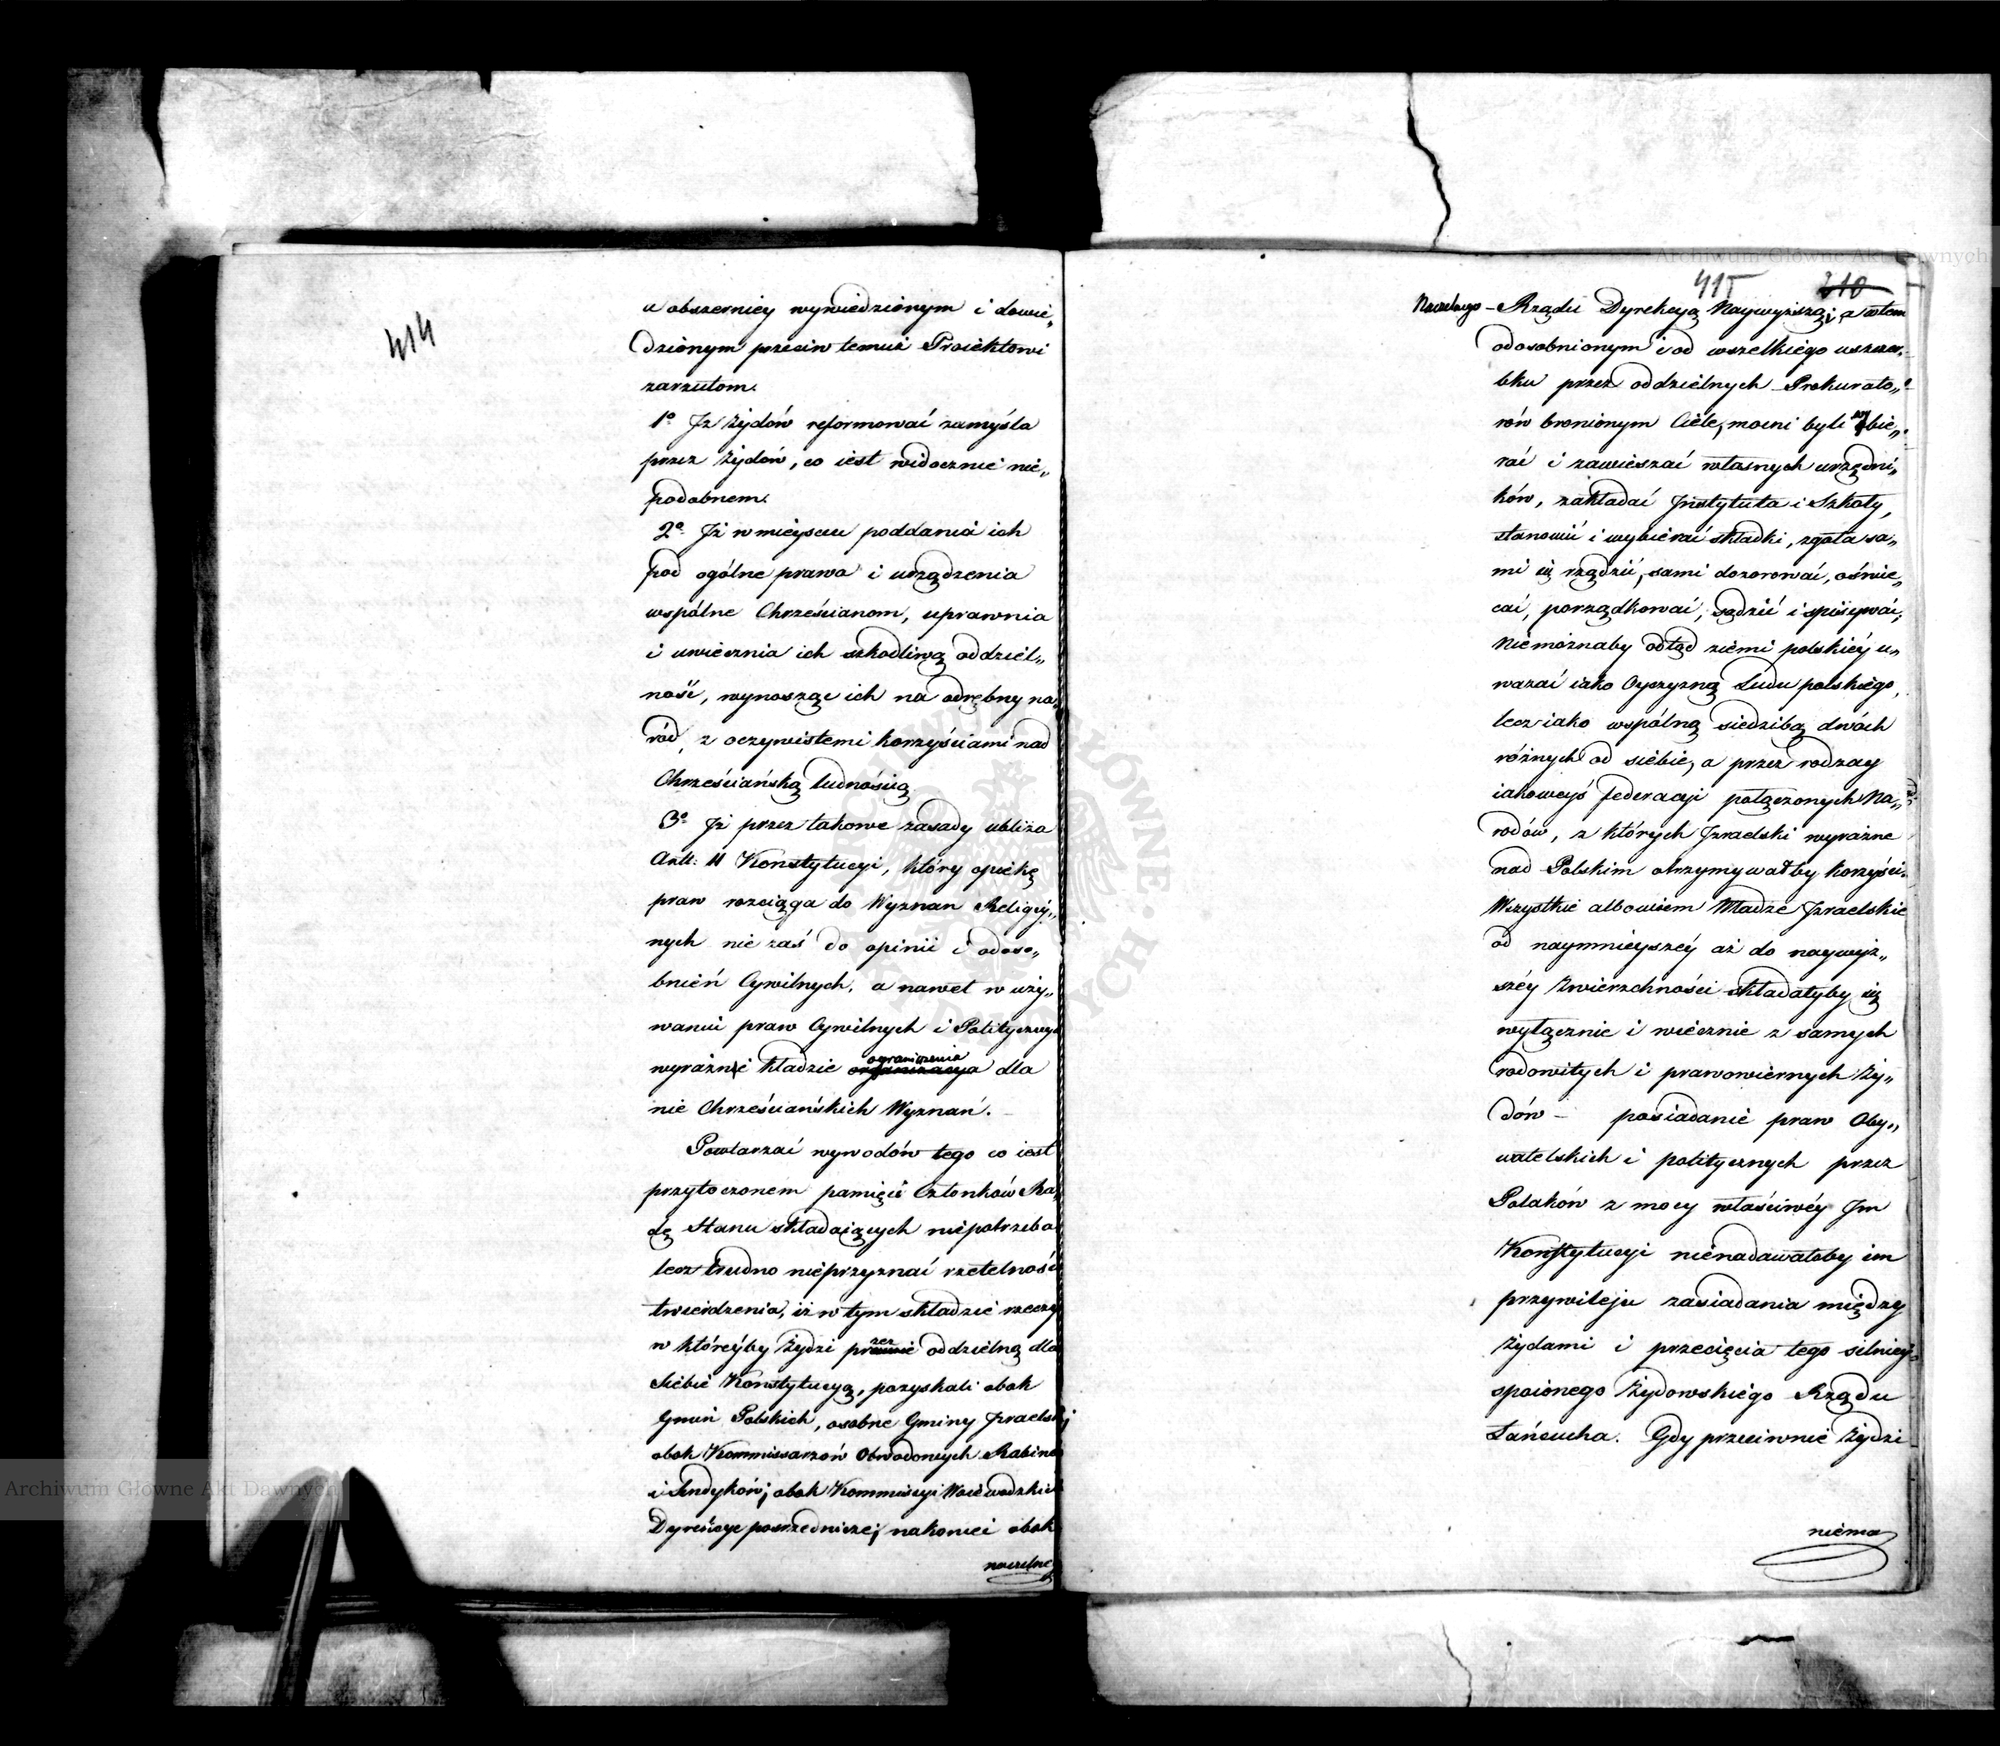 414
u obszerniey wywiedzionym i dowie„
dzionym przeciw temuż Proiektowi
zarzutom.
1º Iż Żydów reformować zamyśla
przez Żydów, co iest widocznie nie„
podobnem.
2º Iż w mieyscu poddania ich
pod ogólne prawa i urządzenia
wspólne Chrześcianom, uprawnia
i uwiecznia ich szkodliwą oddziel„
ność, wynosząc ich na odrębny na„
ród, z oczywistemi korzyściami nad
Chrześciańską ludnością
3º Iż przez takowe zasady ubliża
Artt: 11 Konstytucyi, który opiekę
praw rozciąga do Wyznan Religiy„
nych nie zaś do opinii i odoso„
bnień Cywilnych, a nawet w uży„
waniu praw Cywilnych i Politycznych
ograniczenia
wyraźnie kładzie organizacya dla
nie Chrześciańskich Wyznań.
Powtarzać wywodów tego co iest
przytoczonem pamięci Członków Ra„
dę Stanu składaiących niepotrzeba
lecz trudno nieprzyznać rzetelność
twierdzenia, iż w tym składzie rzeczy
w któreyby Żydzi przez oddzielną dla
siebie Konstytucyą, pozyskali obok
Gmin Polskich, osobne Gminy Izraelski
obok Kommissarzow Obwodowych Rabino
i Sindyków; obok Kommissyi Woiewodzkich
Dyrekcye posrzedniczej nakoniec obok
naczelne
415
210
Naczelnego – Rządu Dyrekcyą Naywyższą; a zatem
odosobnionym i od wszelkiego uszczer„
bku przez oddzielnych Prokurato„
rów bronionym Ciele, mocni byli wybie„
rać i zawieszać własnych urzędni„
ków, zakładać Instytuta i Szkoły,
stanowić i wybierać składki, zgoła sa„
mi się rządzić, sami dozorować, oświe„
cać, porządkować, sądzić i
Niemożnaby odtąd ziemi polskiéy u„
ważać iako Oyczyzną Ludu polskiego,
lecz iako wspólną siedzibą dwóch
różnych od siebie, a przez rodzay
iakoweyś federacyi połączonych Na„
rodów, z których Izraelski wyraźne
nad Polskim otrzymywałby korzyści.
Wszystkie albowiem Władze Izraelskie
od naymnieyszéy aż do naywyż„
széy Zwierzchności składałyby się
wyłącznie i wiecznie z samych
rodowitych i prawowiernych Ży„
dów – posiadanie praw Oby„
watelskich i politycznych przez
Polaków z mocy właściwéy Im
Konstytucyi nienadawałoby im
przywileju zasiadania między
Żydami i przecięcia tego silniey
spoionego Żydowskiego Rządu
Łańcucha. Gdy przeciwnie Żydzi
niema
Archiwum Główne Akt Dawnych
Archiwum Główne Akt Dawnych